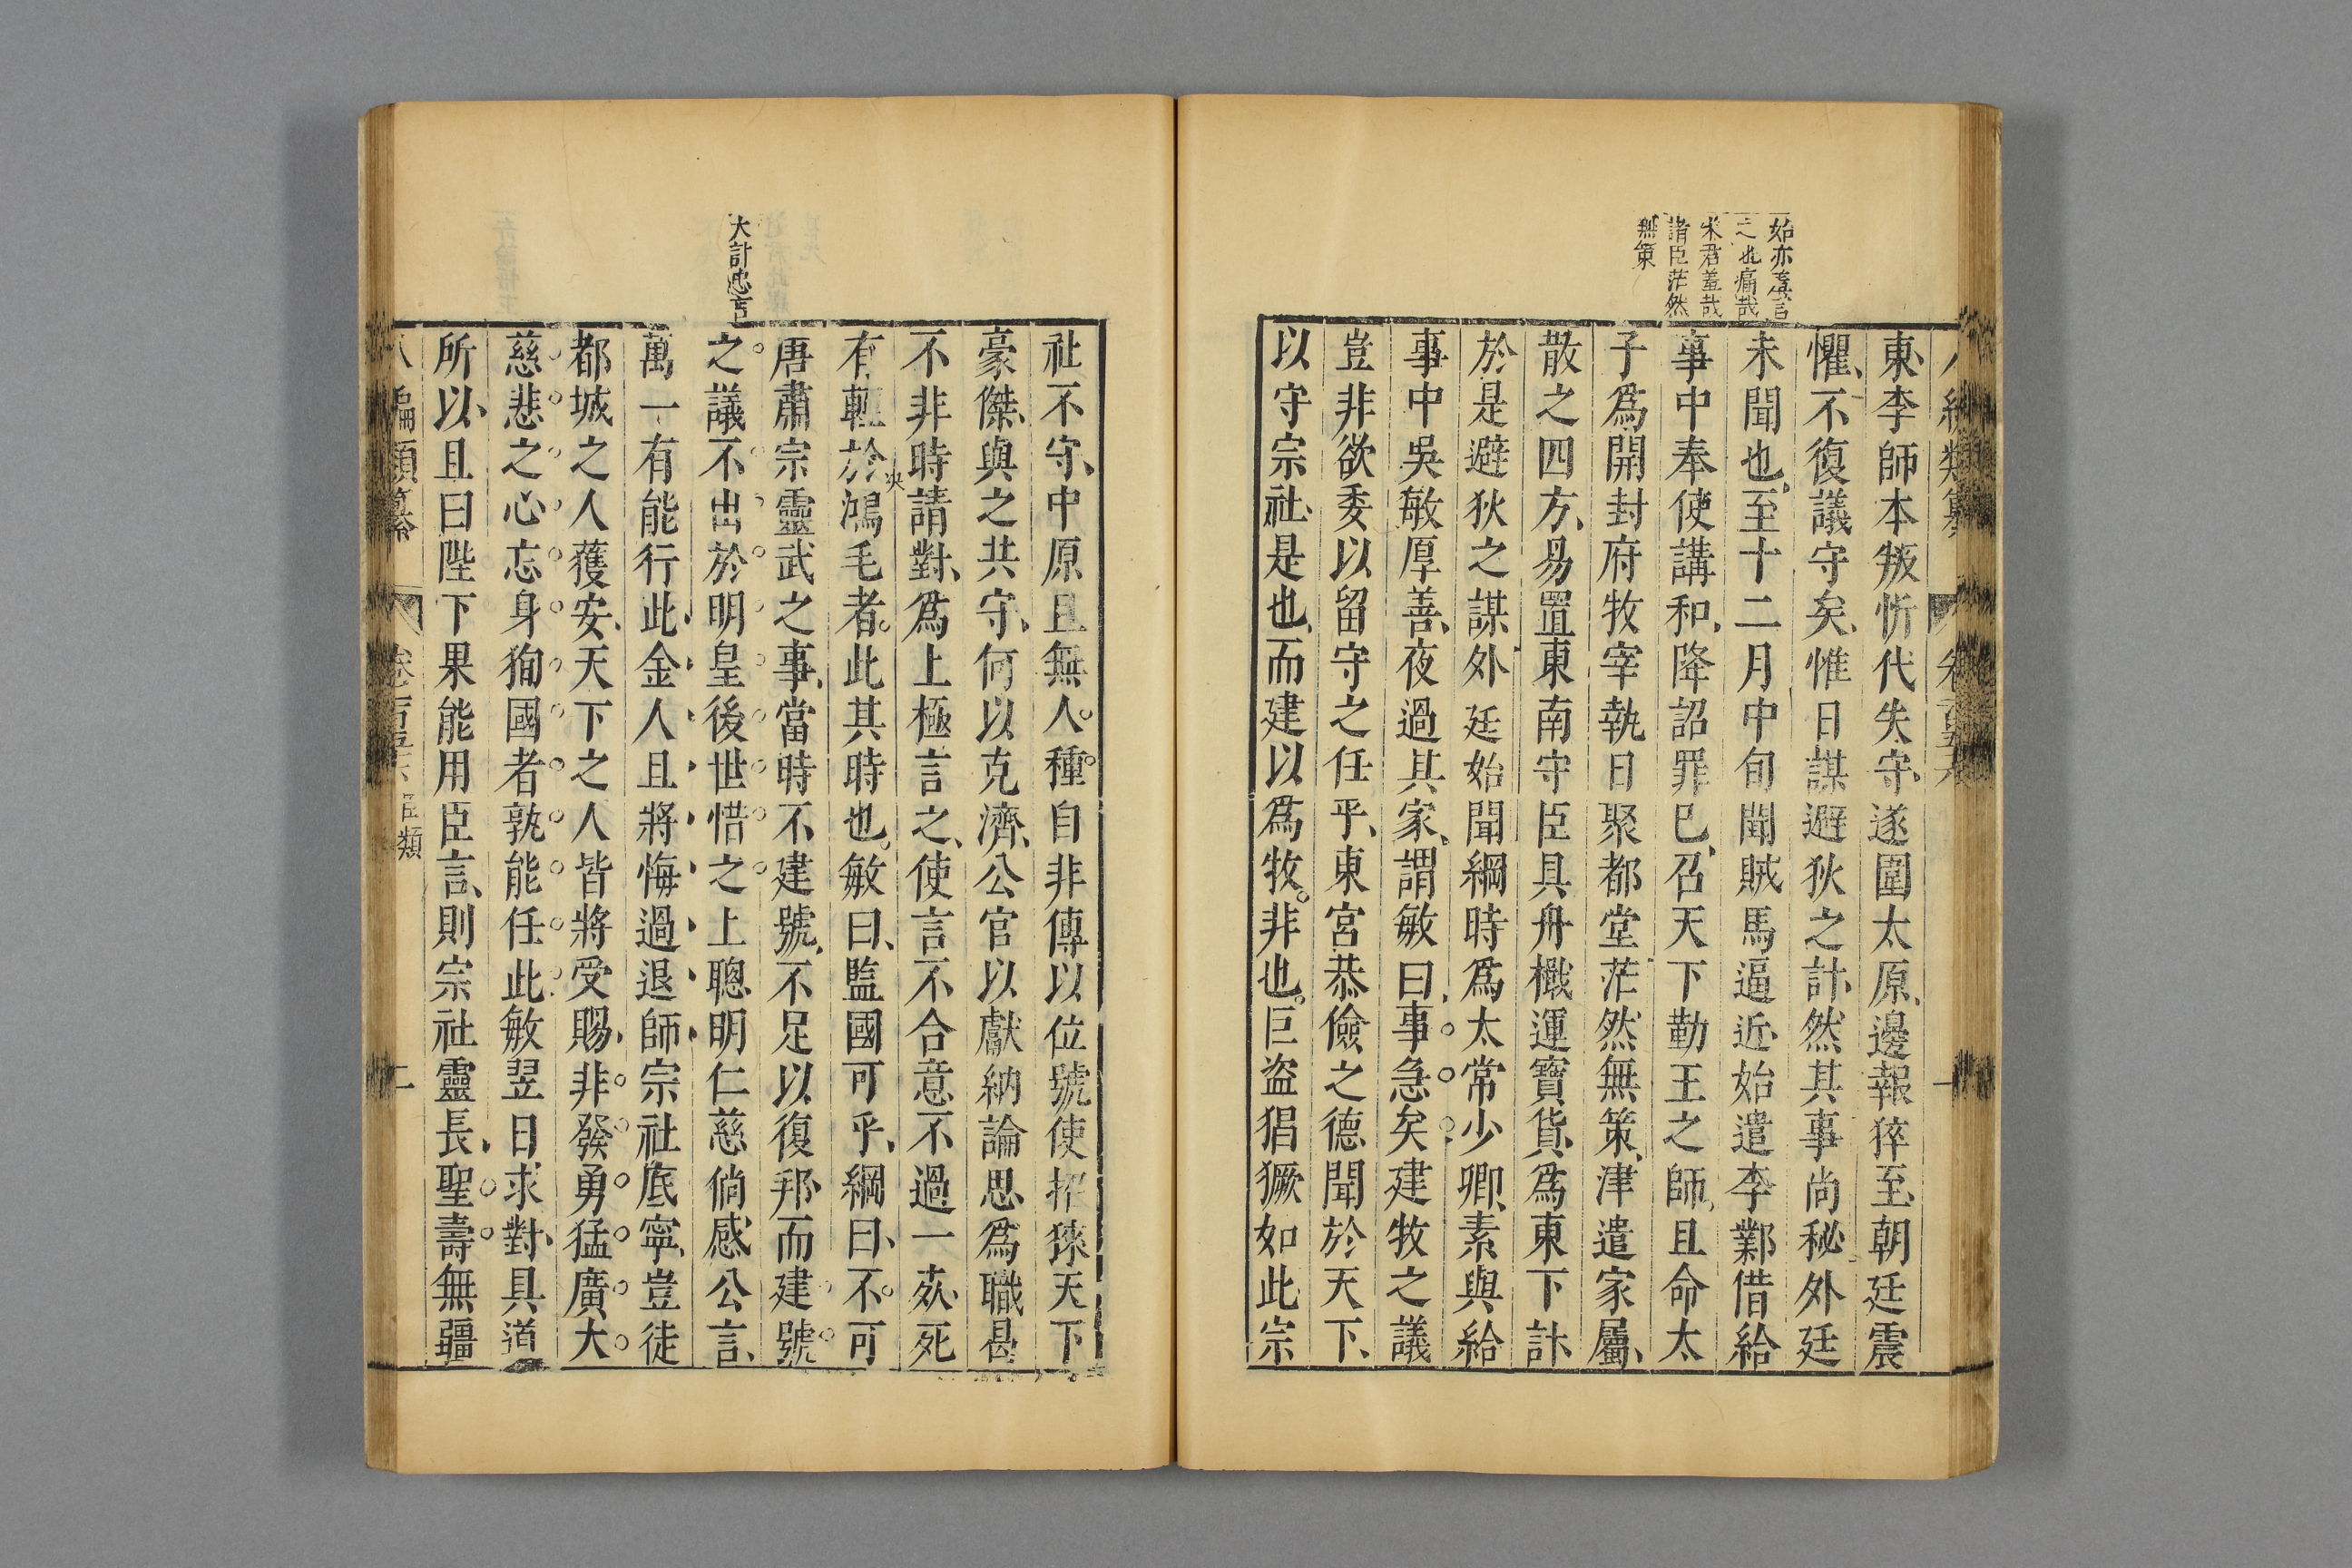 始亦羞言
之也痛哉
宋君羞哉
諸臣茫然
無策
東李師本叛忻代失守遂圍太原邊報猝至朝廷震
懼不復議守矣惟日謀避狄之計然其事尚秘外廷
未聞也至十二月中旬聞賊馬逼近始遣李鄴借給
事中奉使講和降詔罪已召天下勤王之師且命太
子爲開封府牧宰執日聚都堂茫然無策津遣家屬
散之四方易置東南守臣具舟檝運寶貨爲東下計
於是避狄之謀外廷始聞綱時爲太常少卿素與給
事中吳敏厚善夜過其家謂敏曰事急矣建牧之議
豈非欲委以留守之任乎東宮恭儉之德聞於天下
以守宗社是也而建以爲牧非也巨盗猖獗如此宗
大計忠言
社不守中原且無人種自非傳以位號使招徠天下
豪傑與之共守何以克濟公官以獻納論思爲職曷
不非時請對爲上極言之使言不合意不過一死死
有輕於鴻毛者此其時也敏曰監國可乎綱曰不可
唐肅宗靈武之事當時不建號不足以復邦而建號
之議不出於明皇後世惜之上聰明仁慈倘感公言
萬一有能行此金人且將悔過退師宗社底寧豈徒
都城之人獲安天下之人皆將受賜非發勇猛廣大
慈悲之心忘身狥國者孰能任此敏翌日求對具道
所以且曰陛下果能用臣言則宗社靈長聖壽無疆
八編類纂